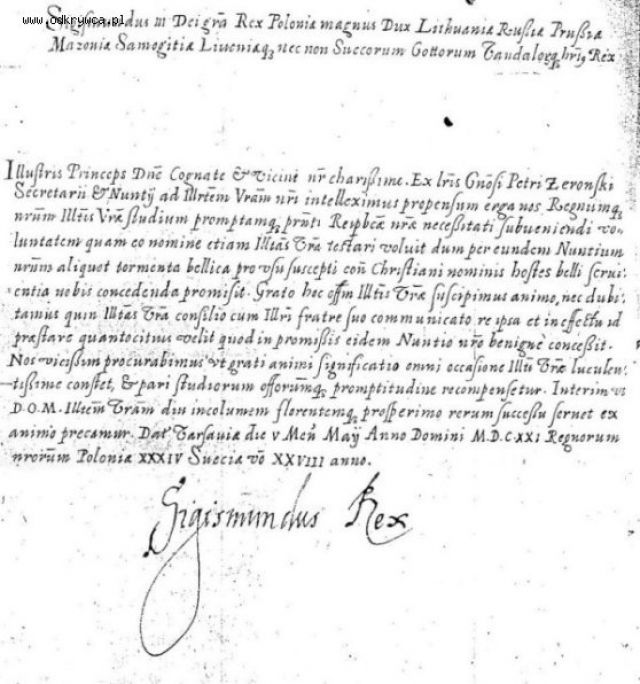 www.odkrywca.pl
Sigismundus III Dei grã Rex Poloniæ magnus Dux Lithuaniæ Russiæ Prussiæ
Mazoviæ Samogitiæ Livoniæq, nec non Suecorum Gottorum Vandalorq, hrıs Rex
Illustris Princeps Dñe Cognate & Vicine nr charissime. Ex lris Gnõsi Petri Żeronski
Secretarii & Nuntij ad Illrtẽm Vrãm nri intelleximus propensum erga nos Regnumq,
nrũm Illtis Vræ studium promptamq, prñti Reipbcæ nræ necessitati subueniendi vo-
luntatem quam eo nomine etiam Illtãs Vrã testari voluit dum per eundem Nuntium
nrũm aliquot tormenta bellica pro vsu suscepti coñ Christiani nominis hostes belli serui-
entia nobis concedenda promisit. Grato hoc offm Illtis Vræ suscipimus animo, nec dubi-
tamus quin Illtãs Vrã consilio cum Illri fratre suo communicato re ipsa et in effectu id
præstare quantocitius velit quod in promissis eidem Nuntio nrõ benigne concessit.
Nos vicissim procurabimus vt grati animi significatio omni occasione Illti Vræ luculen-
tissime constet, & pari studiorum offorũmq, promptitudine recompensetur. Interim vt
D.O.M. Illtem Vrãm diu incolumem florentemq, prosperimo rerum successu seruet ex
animo precamur. Dat Varsaviæ die V Men Maij Anno Domini M.D.C.XXI Regnorum
nrorũm Poloniæ XXXIV Sueciæ vo XXVIII anno.
Sigismundus Rex